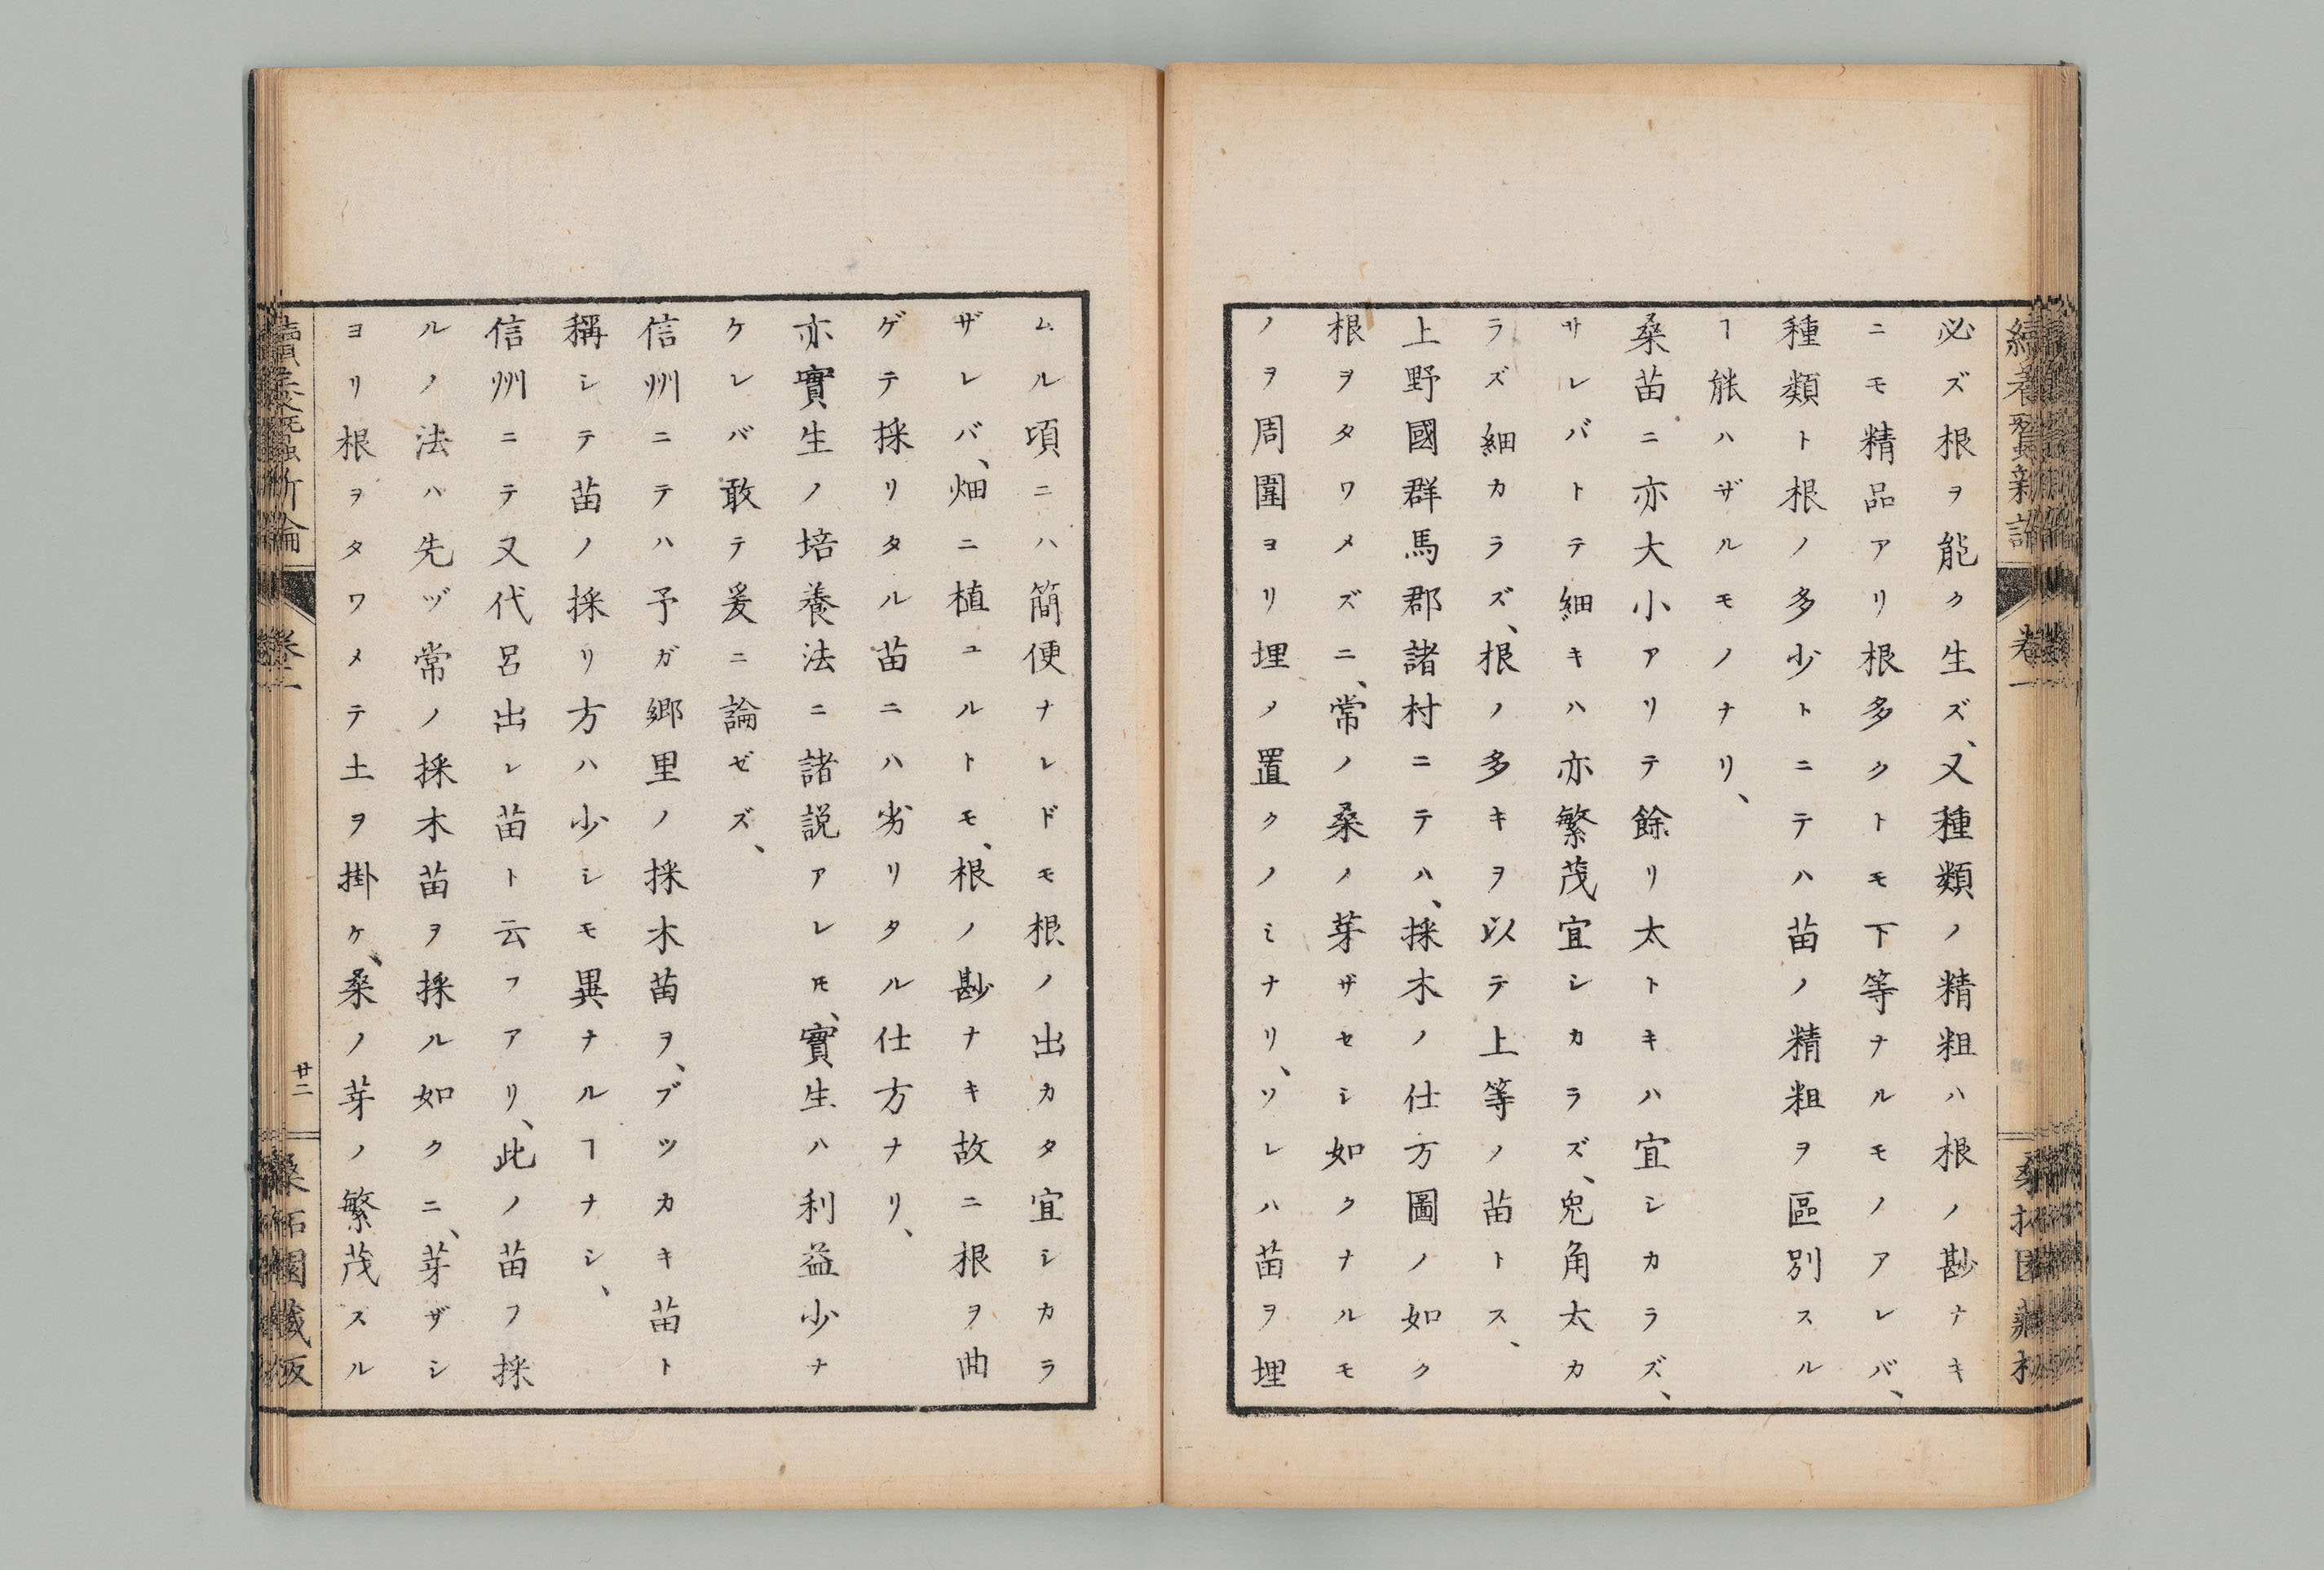 必ズ根ヲ能ク生ズ、又種類ノ精粗ハ根ノ尠ナキ
ニモ精品アリ根多クトモ下等ナルモノアレバ、
種類ト根ノ多少トニテハ苗ノ精粗ヲ區別スル
ヿ能ハザルモノナリ、
桑苗ニ亦大小アリテ餘リ太トキハ宜シカラズ、
サレバトテ細キハ亦繁茂宜シカラズ、兎角太カ
ラズ細カラズ、根ノ多キヲ以テ上等ノ苗トス、
上野國群馬郡諸村ニテハ、採木ノ仕方圖ノ如ク
根ヲタワメズニ、常ノ桑ノ芽ザセシ如クナルモ
ノヲ周圍ヨリ埋メ置クノミナリ、ソレハ苗ヲ埋
ムル頃ニハ簡便ナレドモ根ノ出カタ宜シカラ
ザレバ、畑ニ植ユルトモ、根ノ尠ナキ故ニ根ヲ曲
ゲテ採リタル苗ニハ劣リタル仕方ナリ、
亦實生ノ培養法ニ諸説アレ𪜈、實生ハ利益少ナ
ケレバ敢テ爰ニ論ゼズ、
信州ニテハ予ガ郷里ノ採木苗ヲ、ブツカキ苗ト
稱シテ苗ノ採リ方ハ少シモ異ナルヿナシ、
信州ニテ又代呂出レ苗ト云フアリ、此ノ苗フ採
ルノ法ハ先ヅ常ノ採木苗ヲ採ル如クニ、芽ザシ
ヨリ根ヲタワメテ土ヲ掛ケ、桑ノ芽ノ繁茂スル
廿二